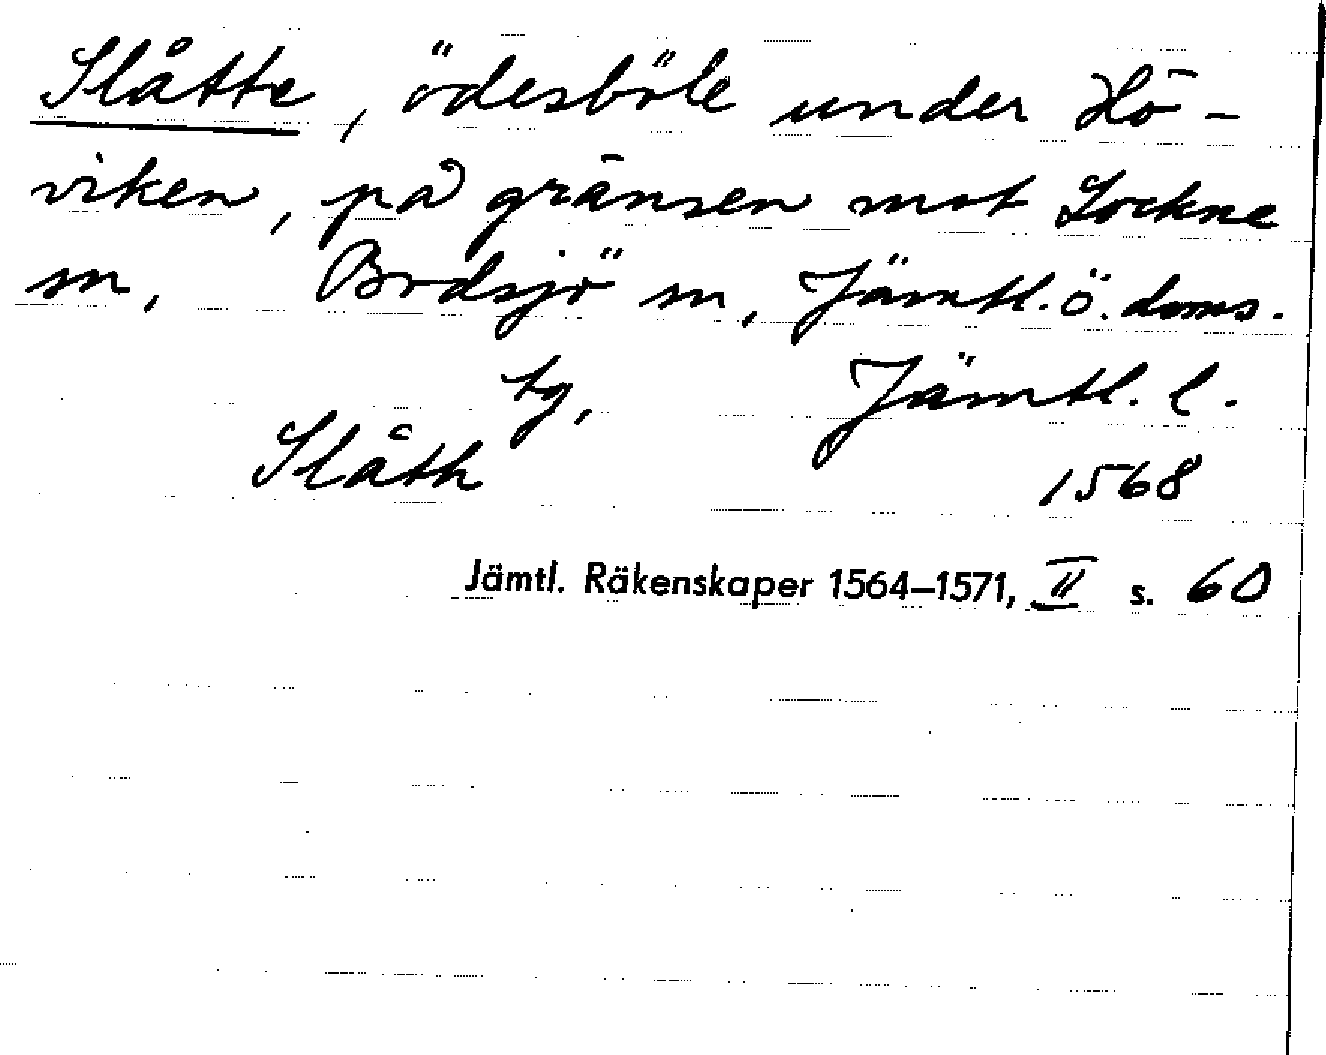 Slåtte, ödesböle under Hö-
viken, på gränsen mot Lockne
sn, Brdsjö sn, Jämtl. ö. doms.
tg, Jämtl. l.
Slåth 1568
Jämtl. Räkenskaper 1564–1571, II s. 60